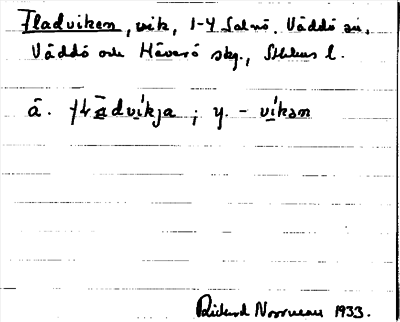 Fladviken, vik, 1-4 Salnö. Väddö sn.
Väddö och Häverö skg., Sthlms l.
ä. flādvíkja ; y. - víkən
Rickard Norrman 1933.